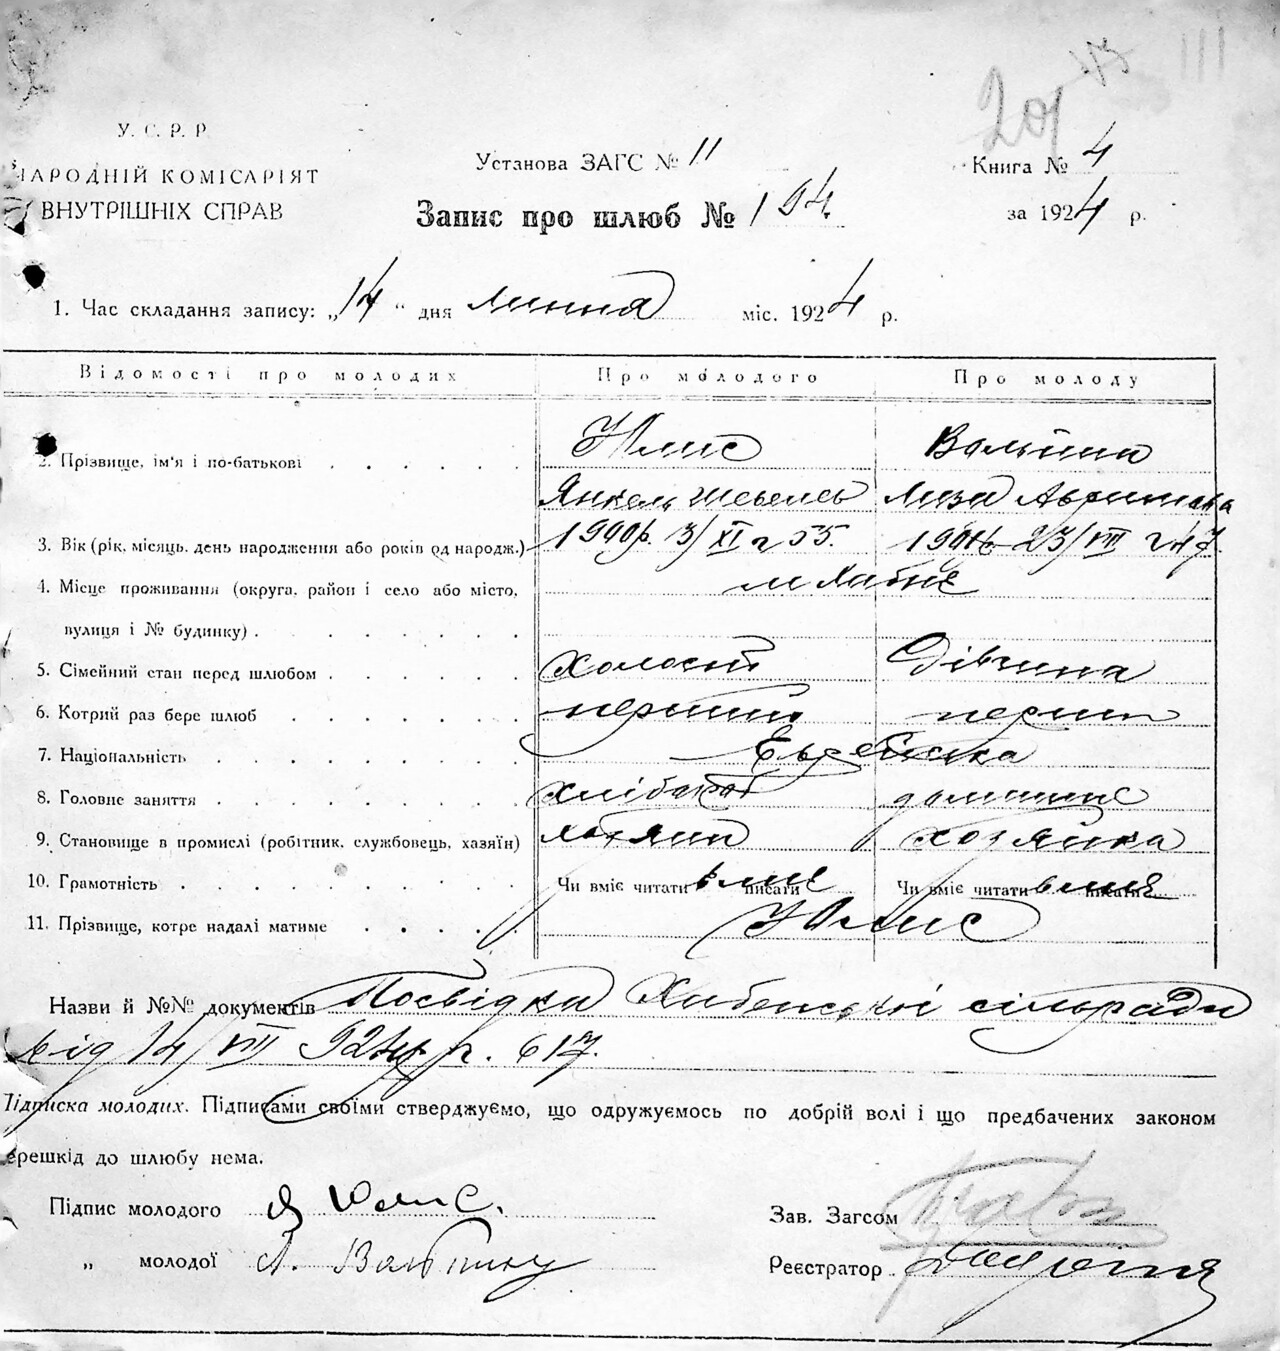 201 43 111
У. С. Р. Р
НАРОДНІЙ КОМІСАРІЯТ
ВНУТРІШНІХ СПРАВ
Установа ЗАГС № 11
Запис про шлюб № 194
Книга № 4
за 1924 р.
1. Час складання запису: „14“ дня липня міс. 1924 р.
Відомості про молодих Про молодого Про молоду
2. Прізвище, ім'я і по-батькові Юлис
Янкель Шевелев Лиза Аврамова
3. Вік (рік, місяць, день народження або років од народж.) 1900р. 3/XI 23/VIII
4. Місце проживання (округа, район і село або місто, м Хабне
вулиця і № будинку)
5. Сімейний стан перед шлюбом холост дівчина
6. Котрий раз бере шлюб перший перший
7. Національність Еврейська
8. Головне заняття хлібороб домашнє
9. Становище в промислі (робітник, службовець, хазяїн) хозяїн хозяйка
10. Грамотність Чи вміє читати вміє писати Чи вміє читати вміє писати
11. Прізвище, котре надалі матиме Юлис
Назви й №№ документів Посвідка Хабенської сільради
від 14/VII 924 р. 617.
Підписка молодих. Підписами своїми стверджуємо, що одружуємось по добрій волі і що предбачених законом
ерешкід до шлюбу нема.
Підпис молодого Я Юлис.
Зав. Загсом
„ молодої Л.
Реєстратор